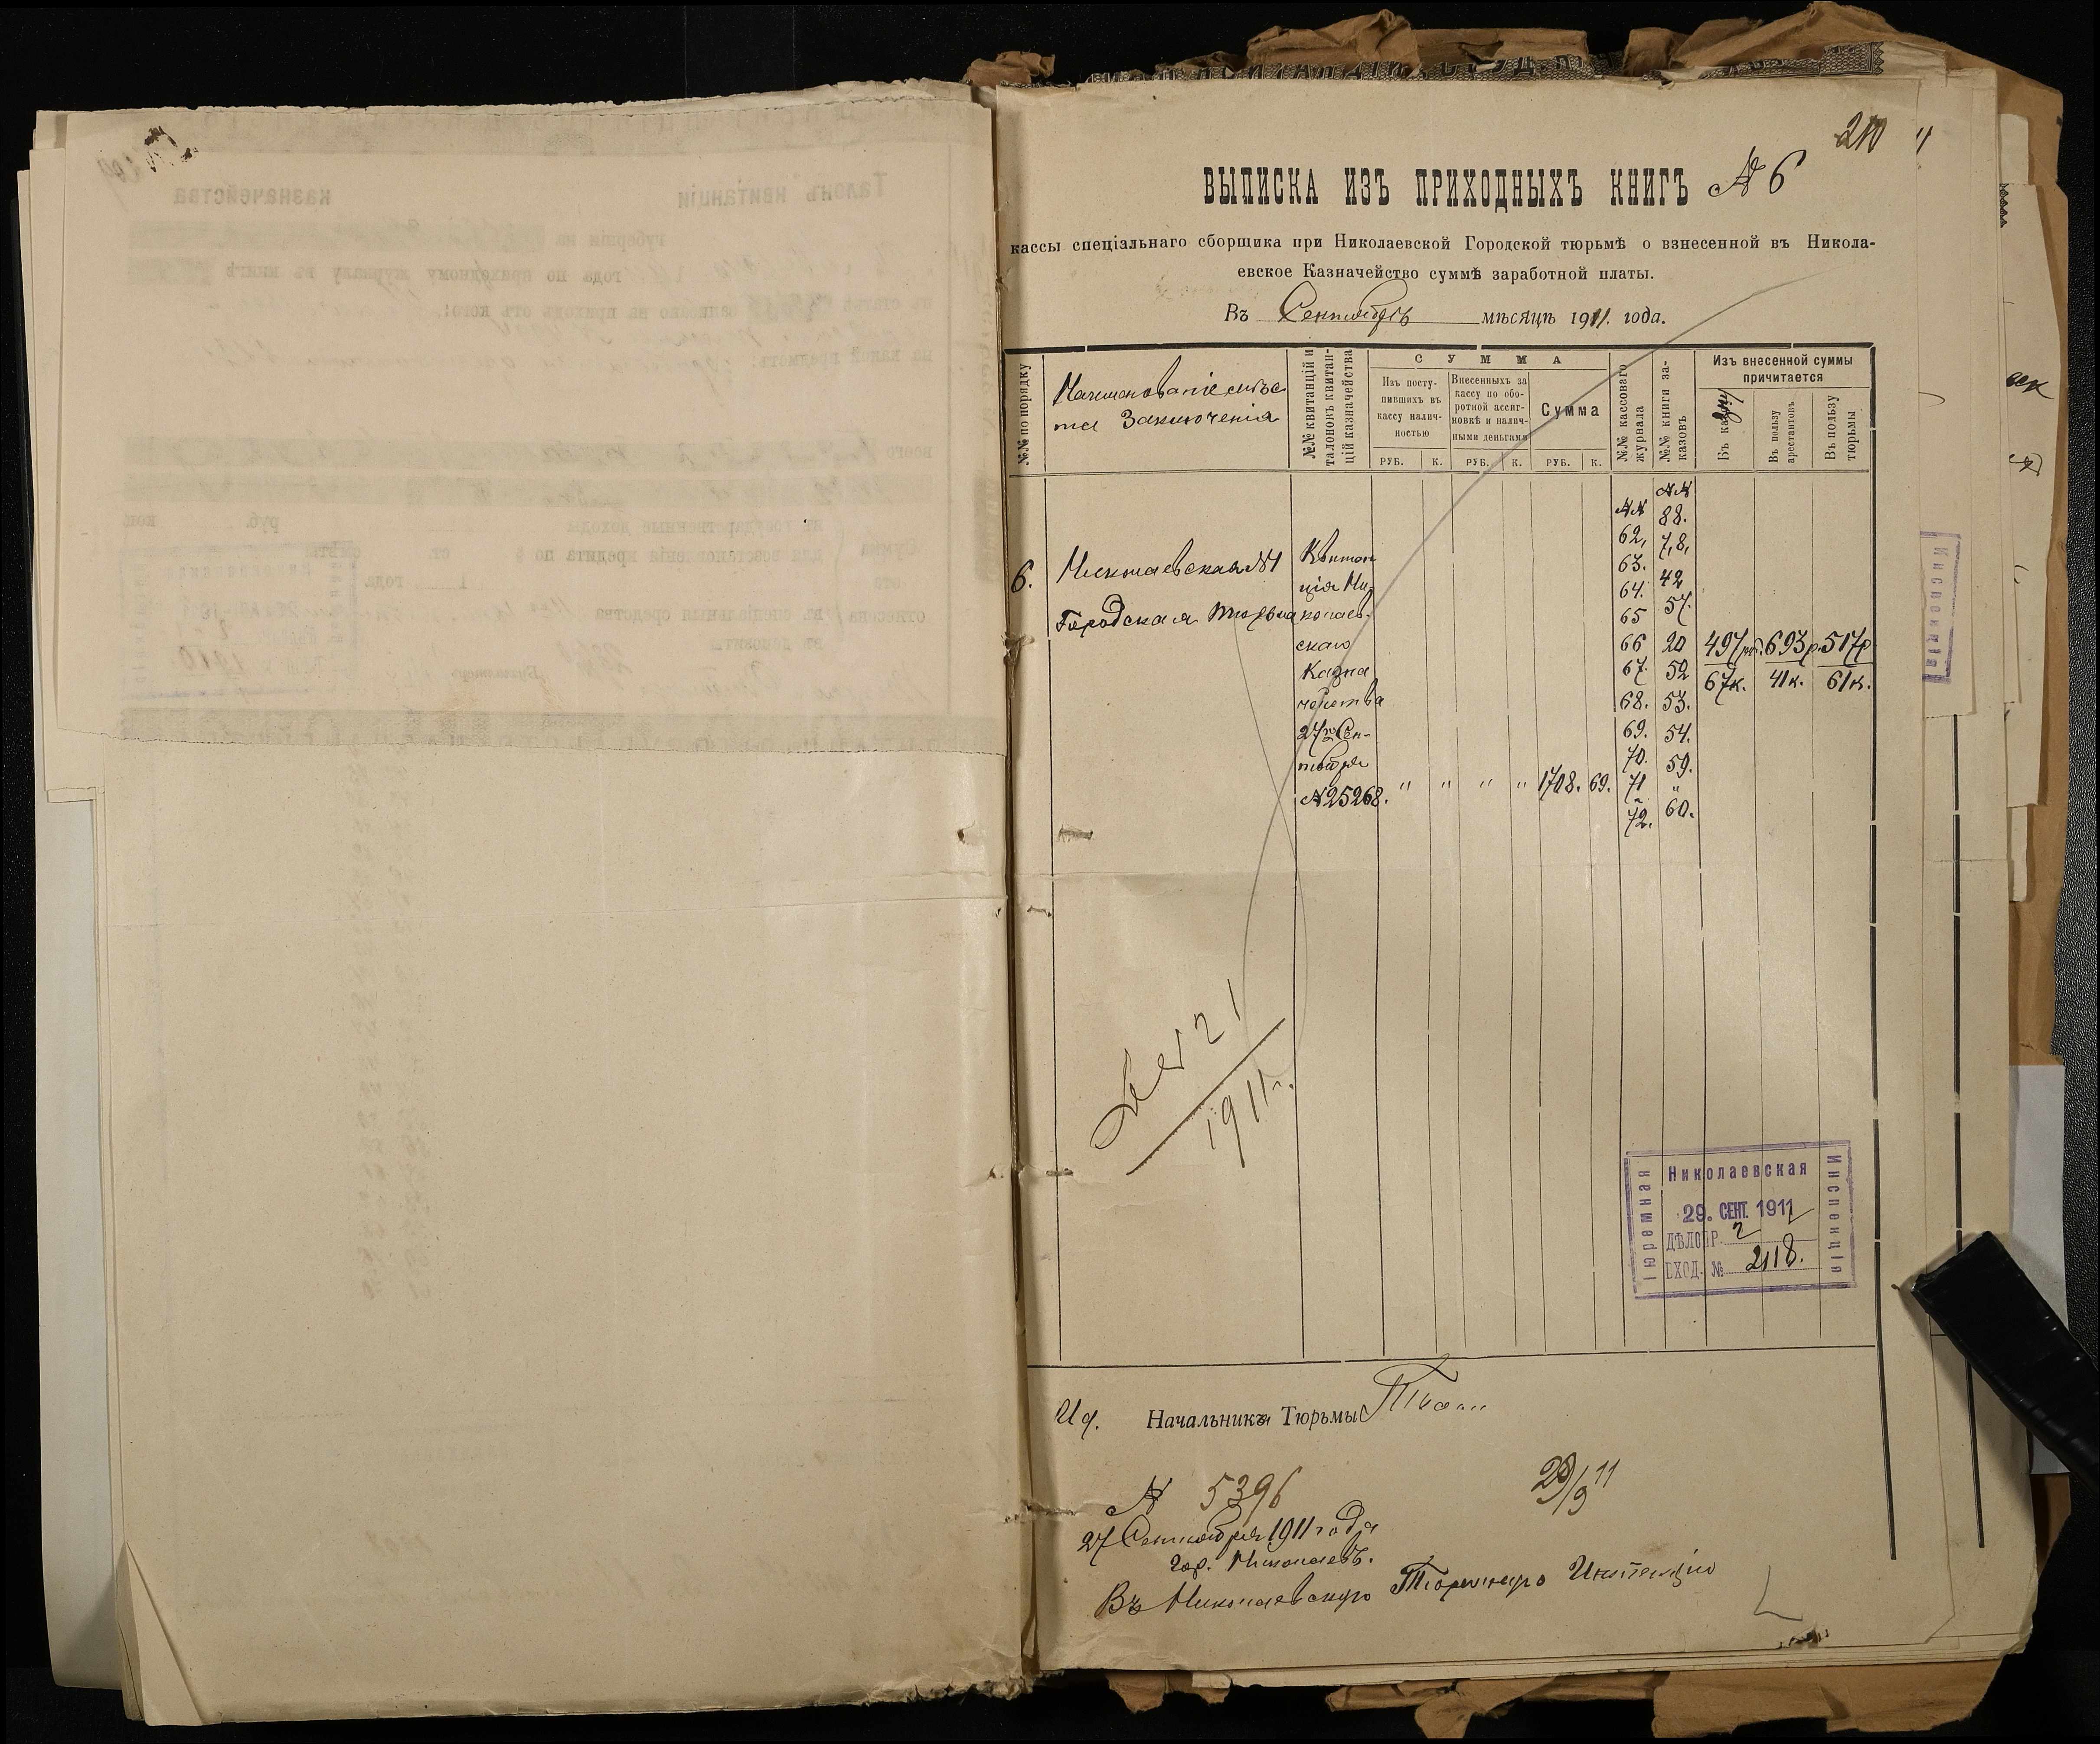 210
ВЫПИСКА ИЗЪ ПРИХОДНЫХЪ КНИГЪ № 6
кассы спеціальнаго сборщика при Николаевской Городской тюрьмѣ о взнесенной въ Никола-
евское Казначейство суммѣ заработной платы.
Въ Сентябрѣ мѣсяцѣ 1911. года.
№№ по порядку
Наименованіе мѣс
та Заключенія
№№ квитанцій и
талоновъ квитан-
цій казначейства
СУММА
Изъ посту-
пившихъ въ
кассу налич-
ностью
Внесенныхъ за
кассу по обо-
ротной ассиг-
новкѣ и налич-
ными деньгами
Сумма
РУБ. К. РУБ. К. РУБ. К.
№№ кассоваго
журнала
№№ книги за-
казовъ
Изъ внесенной суммы
причитается
Въ казну
Въ пользу
арестантовъ
Въ пользу
тюрьмы
6.
Николаевская №1
Городская тюрьма
Квитан
ція Ни
колаев-
скаго
Казна
чейства
27го Сен-
тября
№25268.
" " " " 1708. 69.
№№
62,
63.
64.
65
66
67.
68.
69.
70.
71
72.
№№
88.
7,8,
42
57.
20
52
53.
54.
59.
"
60.
497 руб. 693 р. 517 р
67к. 41к. 61к.
21
1911г.
Николаевская
Тюремная
Инспекція
29. СЕНТ. 1911
ДѢЛОПР. 2
ВХОД. № 2118.
Ид. Начальникъ Тюрьмы
№ 5396
29/9 11
27 Сентября 1911 года
гор. Николаевъ.
Въ Николаевскую Тюремную Инспекцію
Инспекція
Талонъ квитанціи
казначейства
губерніи на
года по приходному журналу въ книгѣ
въ статьѣ
записано въ приходъ отъ кого:
на какой предметъ:
всего
Сумма
эта
отнесена
въ государственные доходы
для возстановленія кредита по §
ст.
смѣты
руб.
коп.
года
въ спеціальныя средства
въ депозиты